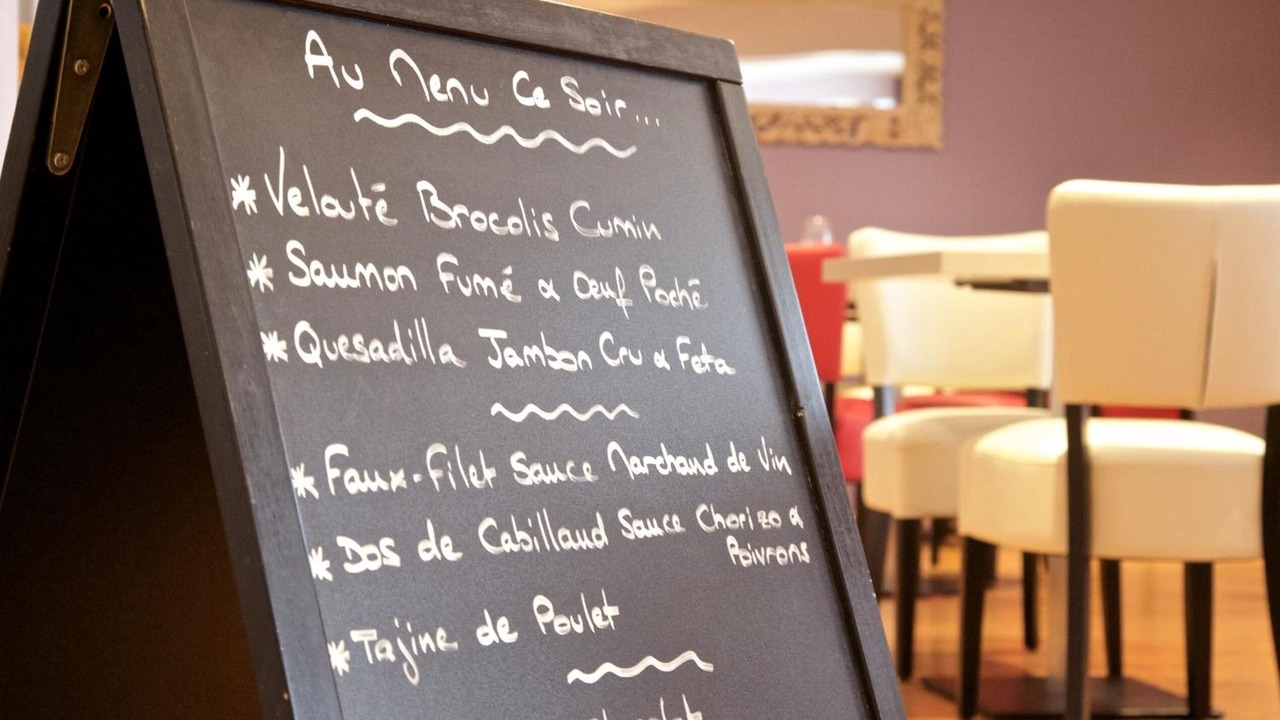 Au Menu Ce Soir...
* Velouté Brocolis Cumin
* Saumon Fumé & Oeuf Poché
* Quesadilla Jambon Cru & Feta
* Faux-Filet Sauce Marchand de Vin
* Dos de Cabillaud Sauce Chorizo &
Poivrons
* Tajine de Poulet